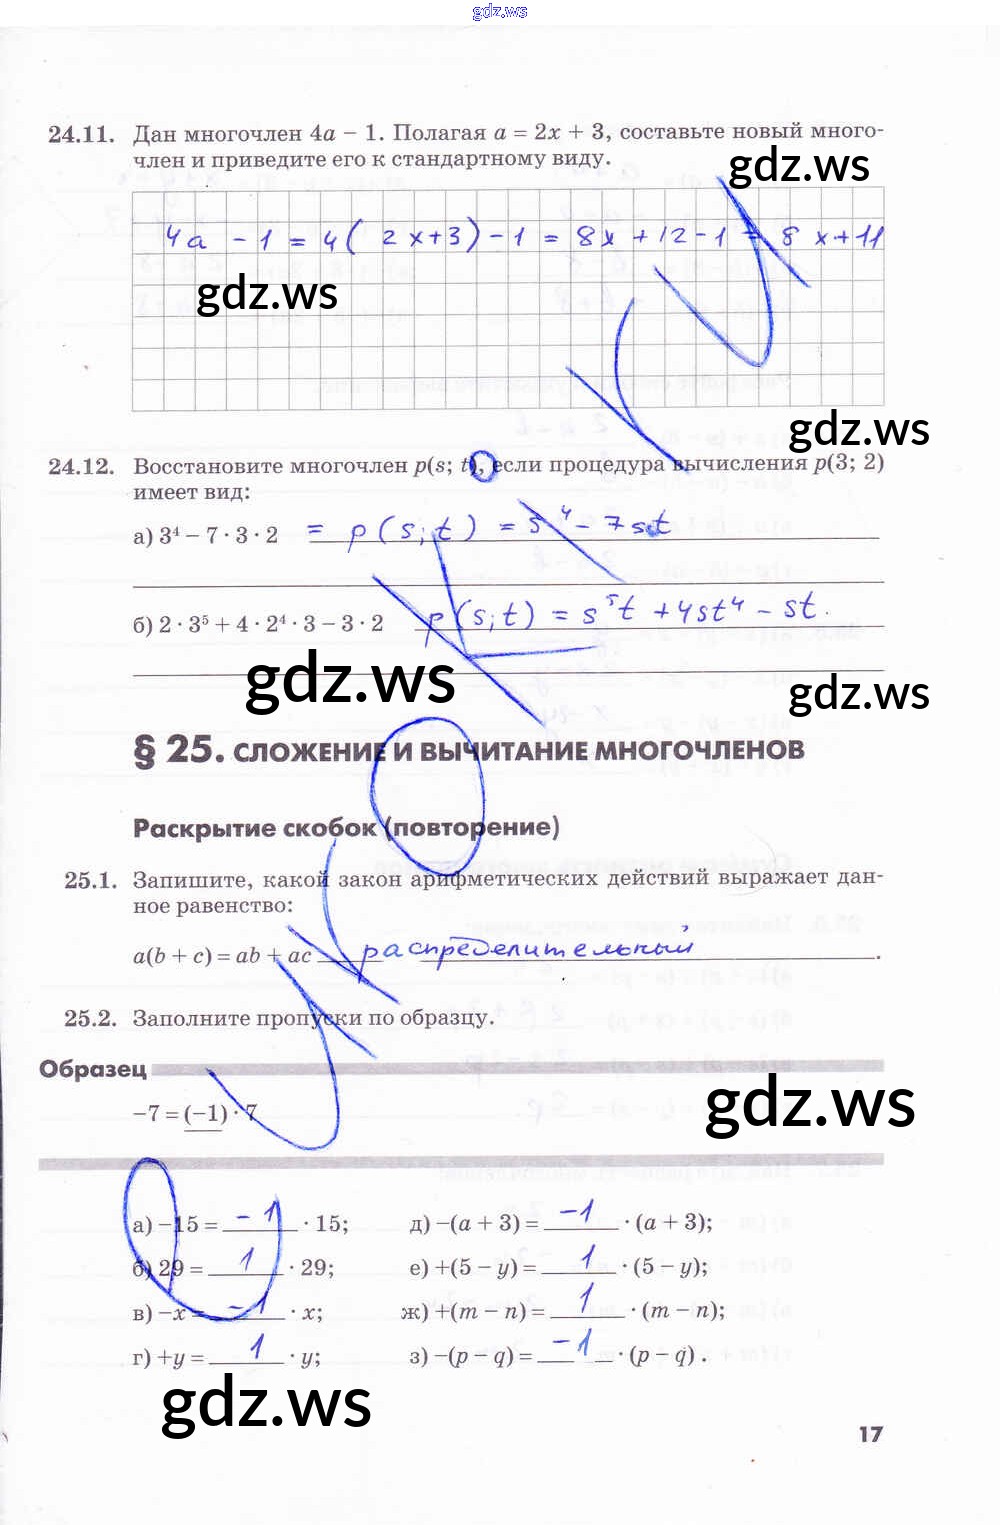 gdz.ws
24.11. Дан многочлен 4a − 1. Полагая a = 2x + 3, составьте новый много-
член и приведите его к стандартному виду.
gdz.ws
4a − 1 = 4( 2x+3) − 1 = 8x + 12 − 1 = 8x+11
gdz.ws
gdz.ws
24.12. Восстановите многочлен p(s; t), если процедура вычисления p(3; 2)
имеет вид:
а) 3⁴ − 7 · 3 · 2 = p(s;t) = s⁴ − 7st
б) 2 · 3⁵ + 4 · 2⁴ · 3 − 3 · 2 p(s;t) = s⁵t + 4st⁴ − st.
gdz.ws
gdz.ws
§ 25. СЛОЖЕНИЕ И ВЫЧИТАНИЕ МНОГОЧЛЕНОВ
Раскрытие скобок (повторение)
25.1. Запишите, какой закон арифметических действий выражает дан-
ное равенство:
a(b + c) = ab + ac распределительный.
25.2. Заполните пропуски по образцу.
Образец
gdz.ws
−7 = (−1) · 7
а) −15 = −1 · 15; д) −(a + 3) = −1 · (a + 3);
б) 29 = 1 · 29; е) +(5 − y) = 1 · (5 − y);
в) −x = −1 · x; ж) +(m − n) = 1 · (m − n);
г) +y = 1 · y; з) −(p − q) = −1 · (p − q) .
gdz.ws
17